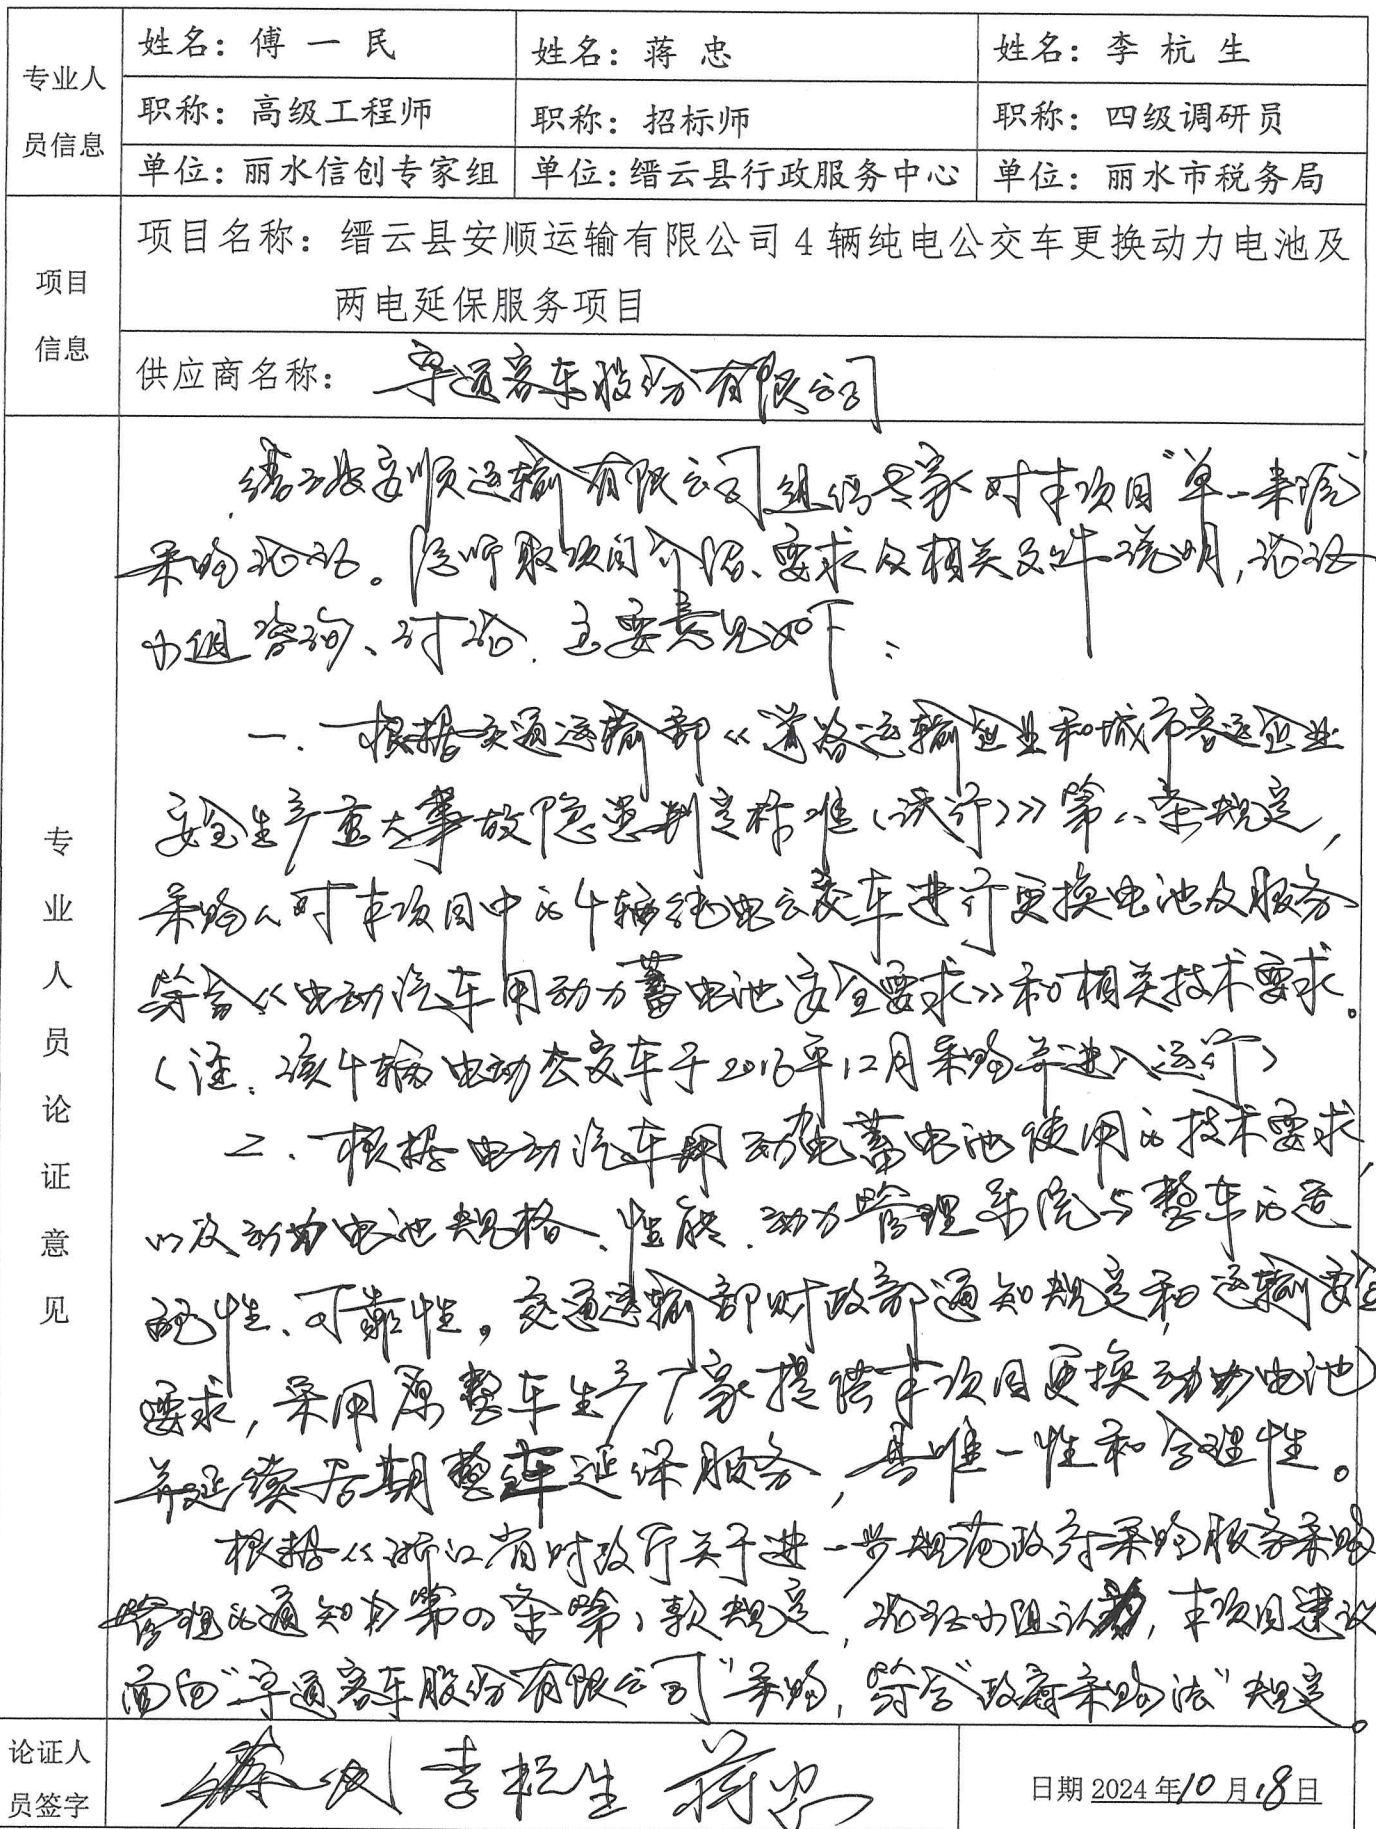 专业人
员信息
姓名：傅一民
姓名：蒋忠
姓名：李杭生
职称：高级工程师
职称：招标师
职称：四级调研员
单位：丽水信创专家组
单位：缙云县行政服务中心
单位：丽水市税务局
项目
信息
项目名称：缙云县安顺运输有限公司4辆纯电公交车更换动力电池及
两电延保服务项目
供应商名称：宇通客车股份有限公司
专业人员论证意见
缙云县安顺运输有限公司组织专家对本项目“单一来源”
采购论证。经听取项目介绍、要求及相关文件说明，论证
小组咨询、讨论，主要意见如下：
一、根据交通运输部《道路运输企业和城市客运企业
安全生产重大事故隐患判定标准（试行）》第八条规定，
采购人对本项目中的4辆纯电公交车进行更换电池及服务
符合《电动汽车用动力蓄电池安全要求》和相关技术要求。
（注：该4辆电动公交车于2016年12月采购并进入运行）
二、根据电动汽车用动力蓄电池使用的技术要求，
以及动力电池规格、性能、动力管理系统与整车的适
配性、可靠性。交通运输部财政部通知规定和运输安全
要求，采用原整车生产厂家提供本项目更换动力电池
并延续后期整车延保服务，具唯一性和合理性。
根据《浙江省财政厅关于进一步规范政府采购服务采购
管理的通知》第四条第1款规定，论证小组认为，本项目建议
面向“宇通客车股份有限公司”采购，符合“政府采购法”规定。
论证人
员签字
傅一民 李杭生 蒋忠
日期 2024年10月18日